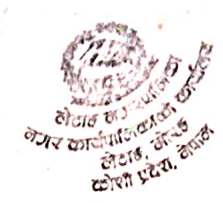 लेटाङ नगरपालिका
नगर कार्यपालिकाको कार्यालय
लेटाङ, मोरङ
कोशी प्रदेश, नेपाल